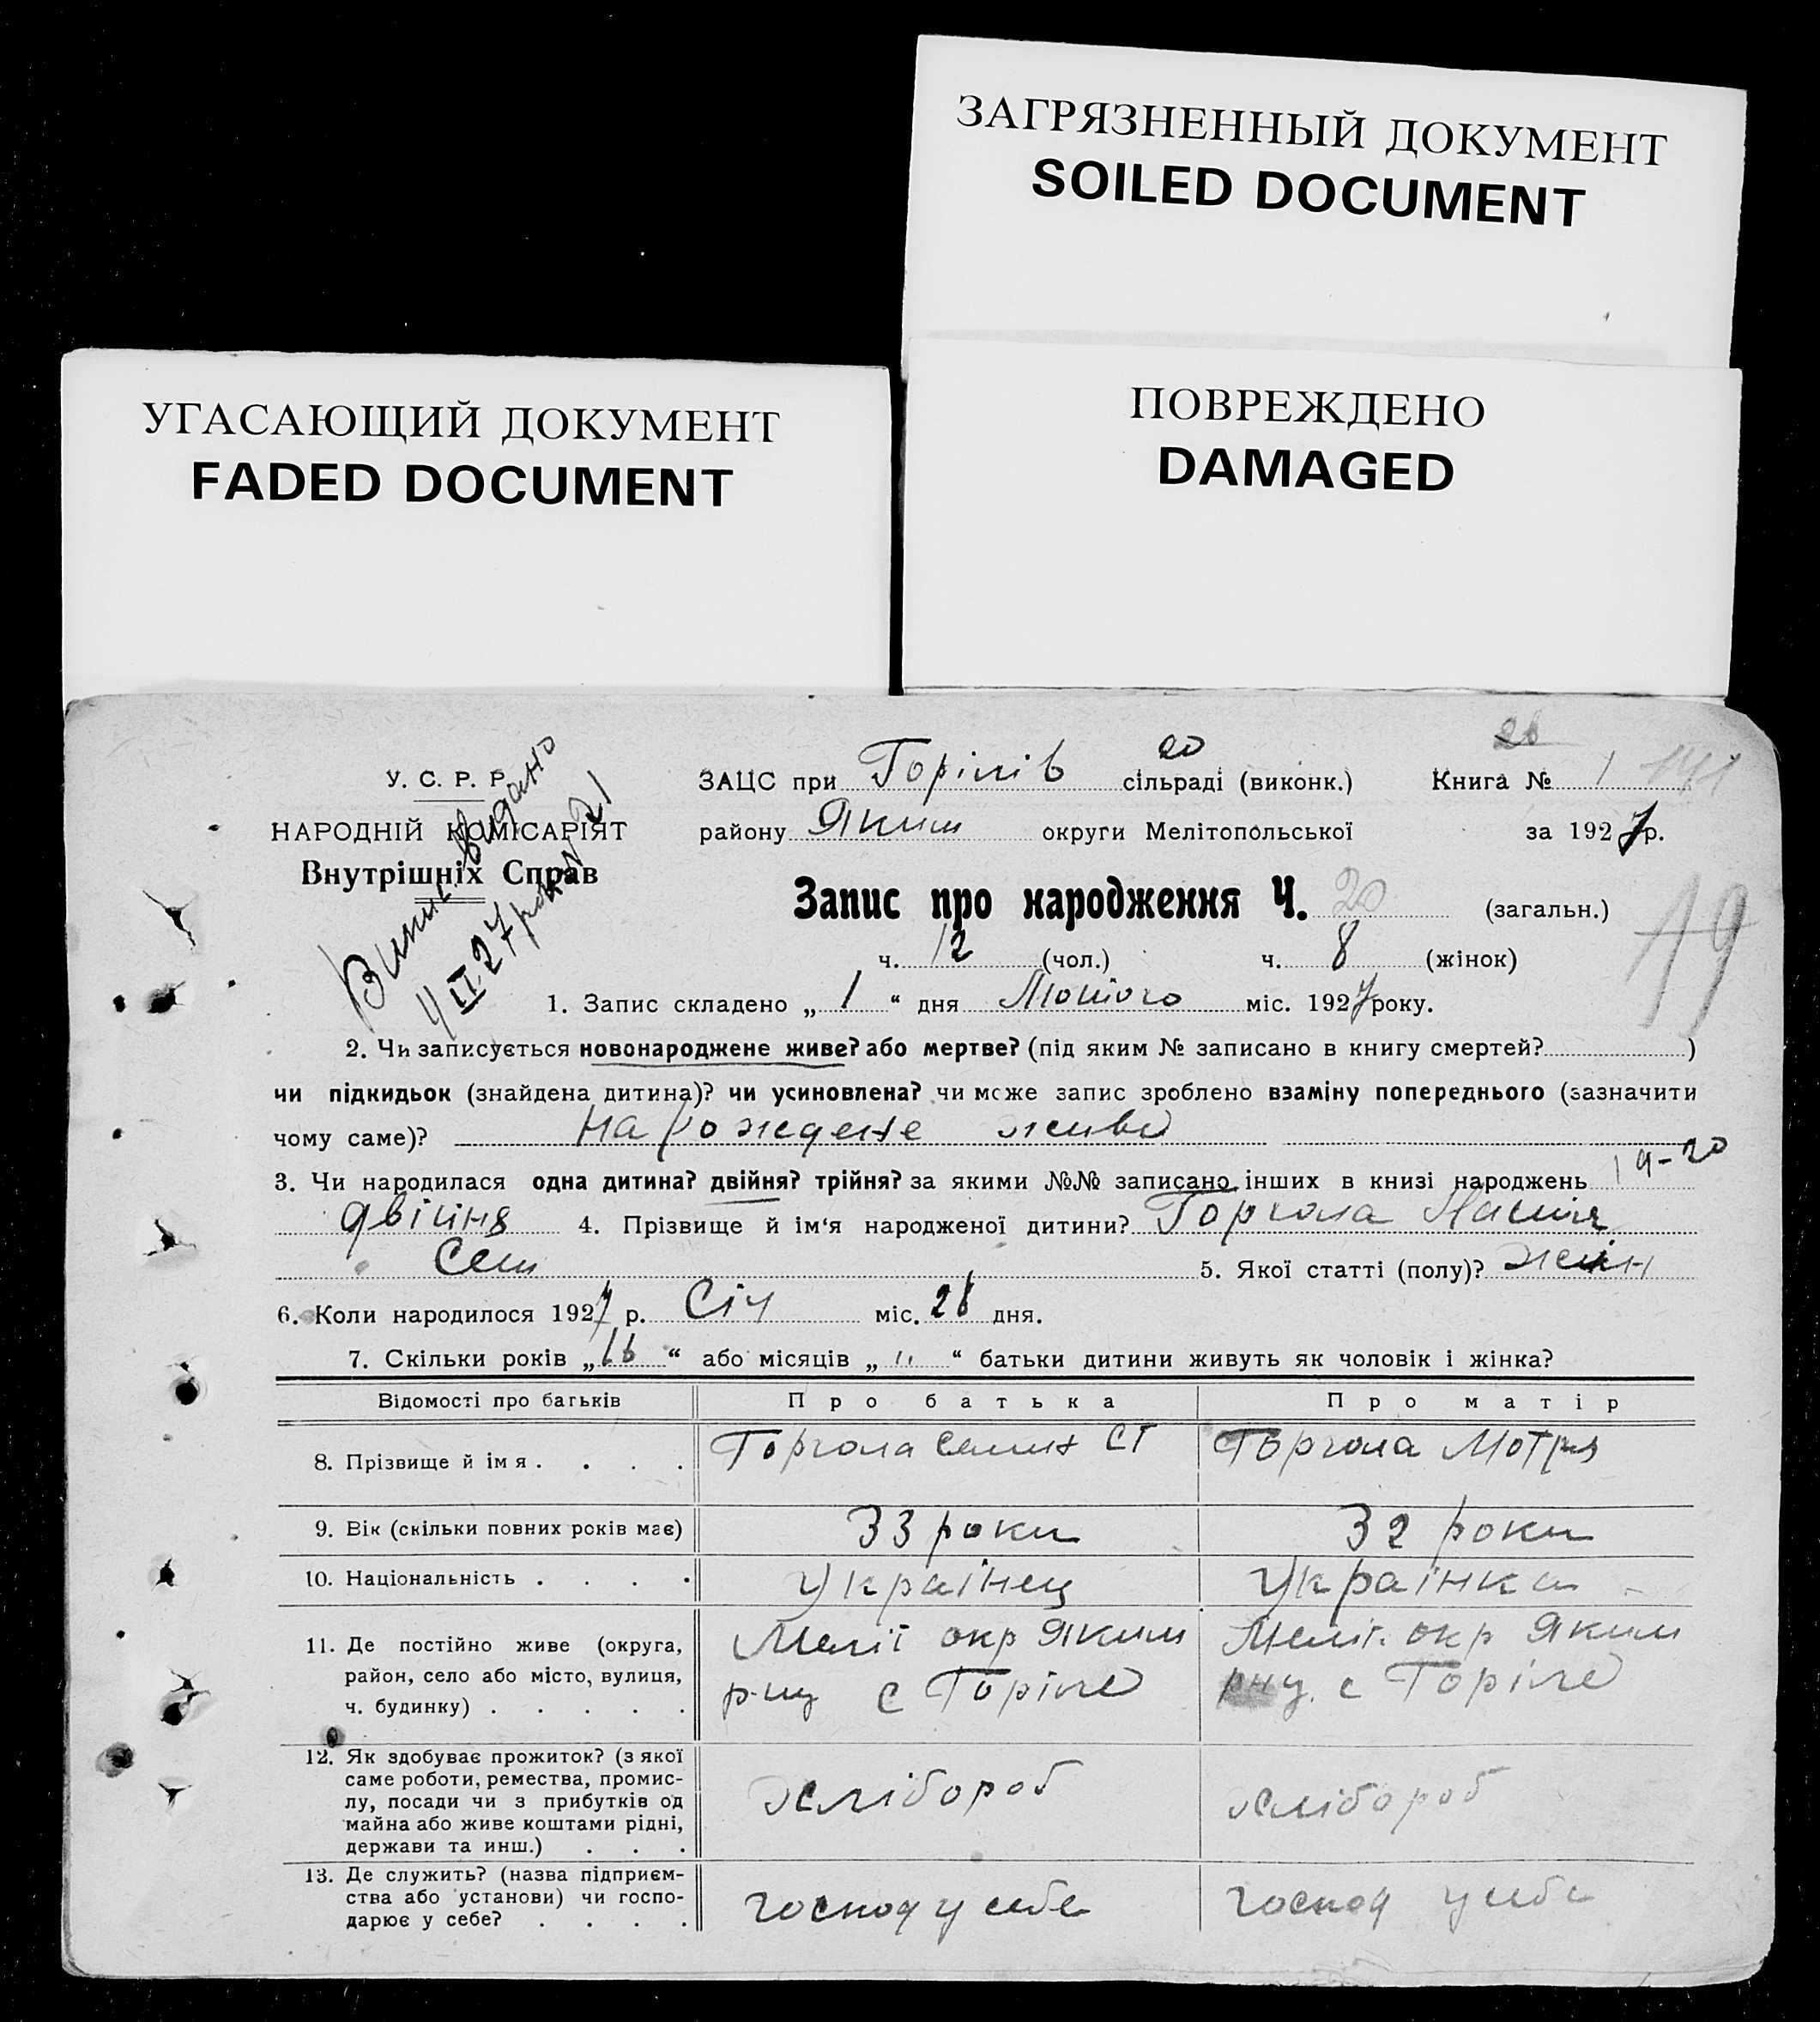 ЗАГРЯЗНЕННЫЙ ДОКУМЕНТ
SOILED DOCUMENT
УГАСАЮЩИЙ ДОКУМЕНТ
FADED DOCUMENT
ПОВРЕЖДЕНО
DAMAGED
Випис видано
4/II 27 року № 21
20
26
У. С. Р. Р.
НАРОДНІЙ КОМІСАРІЯТ
Внутрішніх Справ
ЗАЦС при Горілів сільраді (виконк.) Книга № 1 141
району Яким округи Мелітопольської за 1927 р.
Запис про народження Ч. 20 (загальн.)
19
ч. 12 (чол.) ч. 8 (жінок)
1. Запис складено „ 1 “ дня Лютого міс. 1927 року.
2. Чи записується новонароджене живе? або мертве? (під яким № записано в книгу смертей? )
чи підкидьок (знайдена дитина)? чи усиновлена? чи може запис зроблено взаміну попереднього (зазначити
чому саме)? нарождене живе
3. Чи народилася одна дитина? двійня? трійня? за якими №№ записано інших в книзі народжень 19-20
двійня 4. Прізвище й ім‘я народженої дитини? Горгола
Сем 5. Якої статті (полу)? жін
6. Коли народилося 1927 р. Січ міс. 26 дня.
7. Скільки років „ 16 “ або місяців „ " “ батьки дитини живуть як чоловік і жінка?
Відомості про батьків Про батька Про матір
8. Прізвище й імя . . . . Горгола Семен СТ Горгола Мотря
9. Вік (скільки повних років має) 33 роки 32 роки
10. Національність . . . . Українец Українка
11. Де постійно живе (округа, Меліт окр Яким Меліт. окр Яким
район, село або місто, вулиця, р-ну с Горіле рну. с Горіле
ч. будинку) . . . . .
12. Як здобуває прожиток? (з якої
саме роботи, ремества, промис-
лу, посади чи з прибутків од хлібороб хлібороб
майна або живе коштами рідні,
держави та инш.) . . .
13. Де служить? (назва підприєм-
ства або установи) чи госпо- господ у себе господ у себе
дарює у себе? . . . .